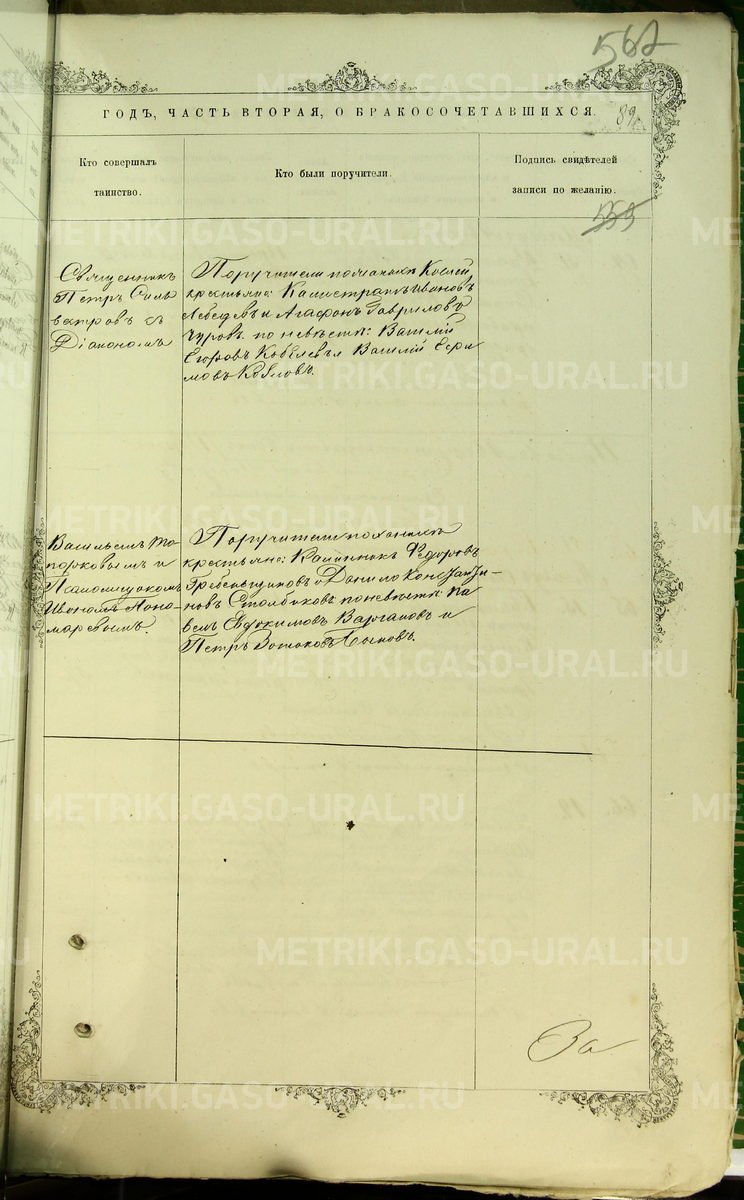 562
ГОДЪ, ЧАСТЬ ВТОРАЯ, О БРАКОСОЧЕТАВШИХСЯ.
89
Кто совершалъ
таинство.
Кто были поручители.
Подпись свидѣтелей
записи по желанію.
559
Священникъ
Петръ Силь
вестровъ съ
Діакономъ
Поручители по женихѣ
крестьяне: Калистратъ Ивановъ
Лебедевъ и Агафонъ Гавриловъ
Чуровъ. по невѣстѣ: Василій
Егоровъ Кобелевъ и Василій Ефи
мовъ Козловъ.
Васильемъ То
порковымъ и
Псаломщикомъ
Иваномъ Поно
маревымъ.
Поручители по женихѣ
крестьяне: Калинникъ Федоровъ
Гребеньщиковъ и Данило Константи
новъ Столбиковъ по невѣстѣ: Па
велъ Евдокимовъ Варгановъ и
Петръ
За
METRIKI.GASO-URAL.RU